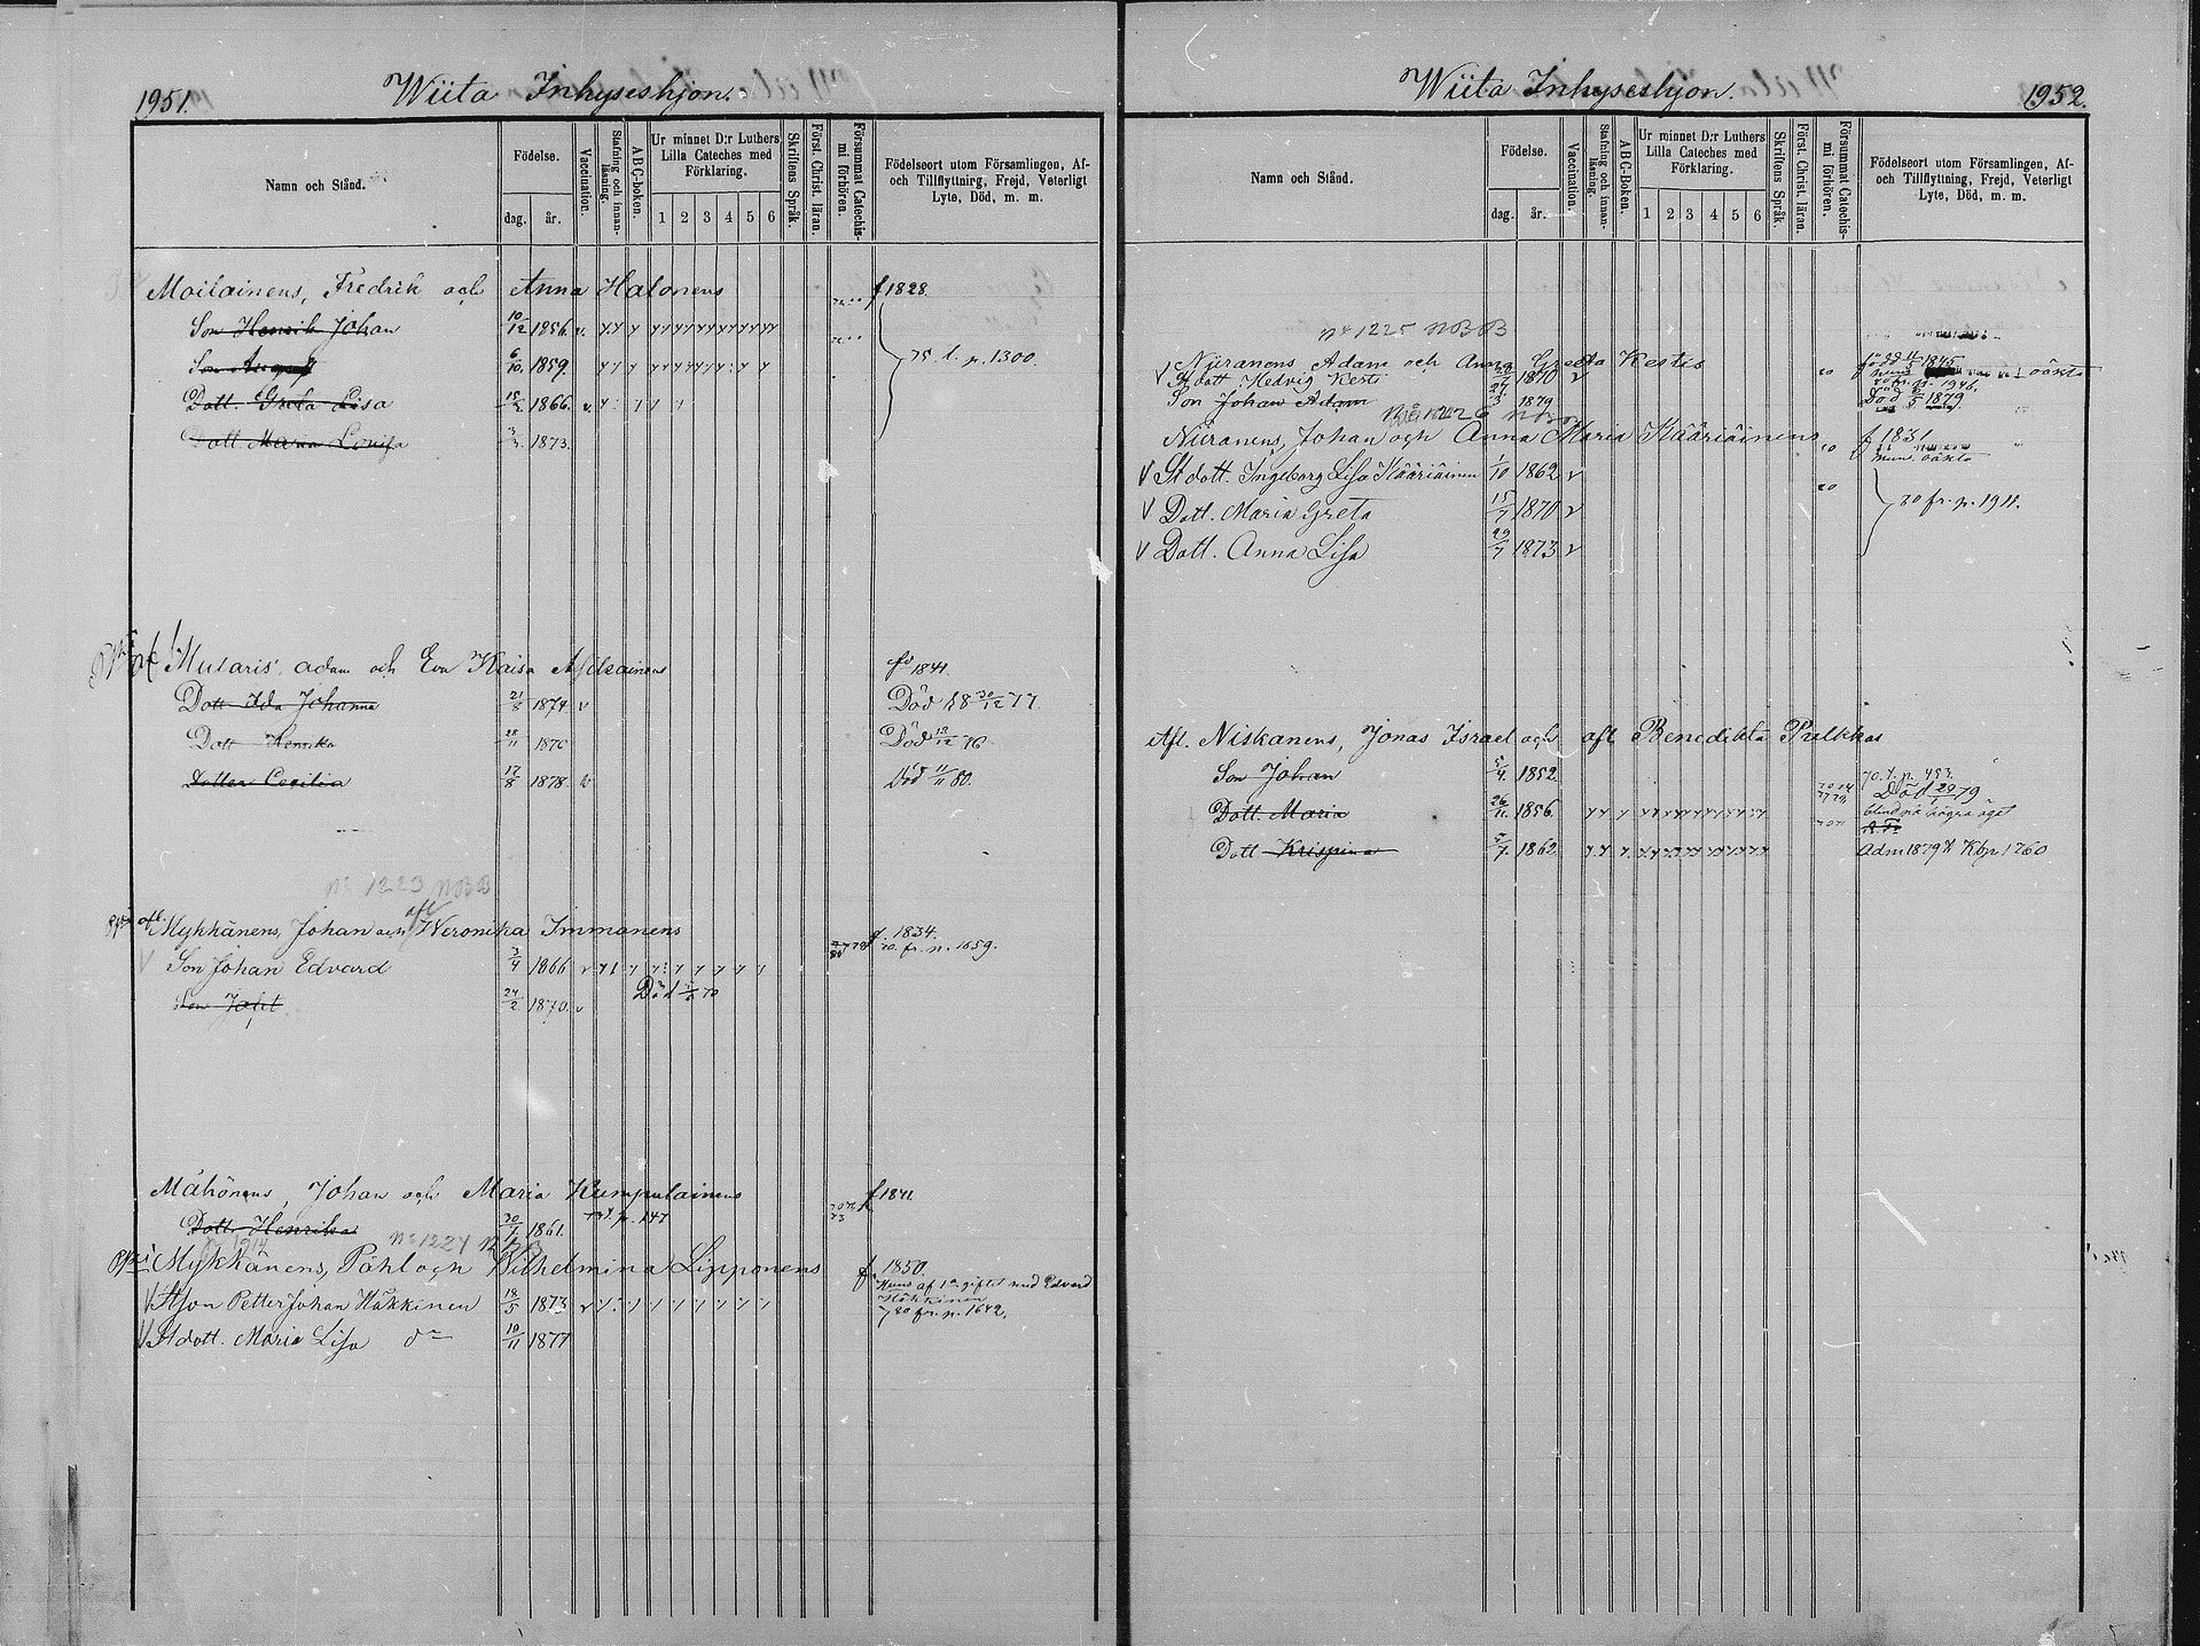 1951.
Wiita Inhyseshjon.
Namn och Stånd.
Födelse.
dag. år.
Vaccination.
Stafning och innan-
läsning.
ABC-boken.
Ur minnet D:r Luthers
Lilla Cateches med
Förklaring.
1 2 3 4 5 6
Skriftens Språk.
Först. Christ. läran.
Försummat Catechis-
mi förhören.
Födelseort utom Församlingen, Af-
och Tillflyttning, Frejd, Veterligt
Lyte, Död, m. m.
Moilainens, Fredrik och Anna Halonens f 1828.
Son Henrik Johan 10/12 1856. v.
Son August 6/10. 1859. 75. t. p. 1300.
Dott. Greta Lisa 15/2. 1866. v.
Dott. Maria Lovisa 3/3. 1873.
Mularis, Adam och Eva Kaisa fö 1841.
Dott Ida Johanna 21/8 1874 v Död 18 30/12 77.
Dott Henrika 28/11 1876 Död 13/12 76
Dotter Cecilia 17/8 1878. v Död 11/11 80.
No 1223 NBB
afl. Mykkänens, Johan och afl Weronika Immonens f. 1834.
70. fr. p. 1659.
Son Johan Edvard 3/4 1866 v
Son Jafet 24/2 1870. v Död
Mähönens, Johan och Maria Kumpulainens f 1841
Dott. Henrika 30/1 1861. p. 147
No 1224 NBB
Mykkänens, Påhl och Wilhelmina Lipponens f 1850
Huns af 1a giftet med Edvard
Häkkinen
V St son Petter Johan Häkkinen 18/5 1873 v 780 fr. p. 1642.
V St dott. Maria Lisa do 10/11 1877
Wiita Inhyseshjon.
1952.
Namn och Stånd.
Födelse.
dag. år.
Vaccination.
Stafning och innan-
läsning.
ABC-Boken.
Ur minnet D:r Luthers
Lilla Cateches med
Förklaring.
1 2 3 4 5 6
Skriftens Språk.
Först. Christ. läran.
Försummat Catechis-
mi förhören.
Födelseort utom Församlingen, Af-
och Tillflyttning, Frejd, Veterligt
Lyte, Död, m. m.
No 1225 NBB
Niiranens Adam och Anna Greta Kestis 1845
V St dott Hedvig Kesti 1870 v oäkta
80 fr. p. 1946.
Son Johan Adam 1879 Död 8/5 1879.
Niiranens, Johan och Anna Maria Kääriäinens f 1831
V St dott. Ingeborg Lisa Kääriäinen 1/10 1862 v oäkta
V Dott. Maria Greta 15/7 1870 v 80 fr. p. 1911.
V Dott. Anna Lisa 29/7 1873 v
Afl. Niskanens, Jonas Israel och afl Benedikta Pulkkas
Son Johan 5/4. 1852. 70. t. p. 453.
Död 29/1 79
Dott. Maria 26/11. 1856. blind på högra ögat
Dott Krispina 5/7. 1862. Adm 1879 Kbp 1760